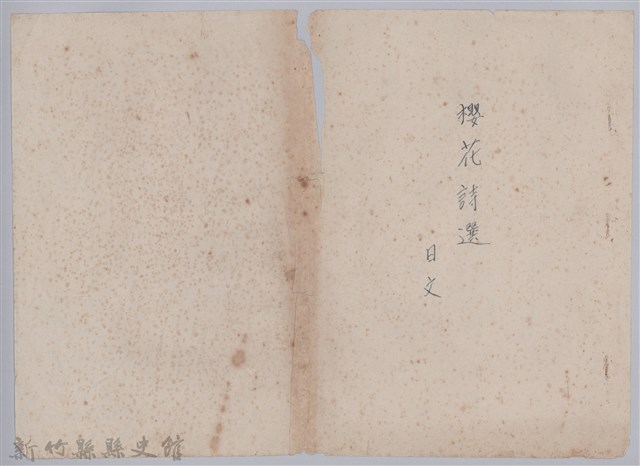 櫻花詩選
日文
新竹縣縣史館